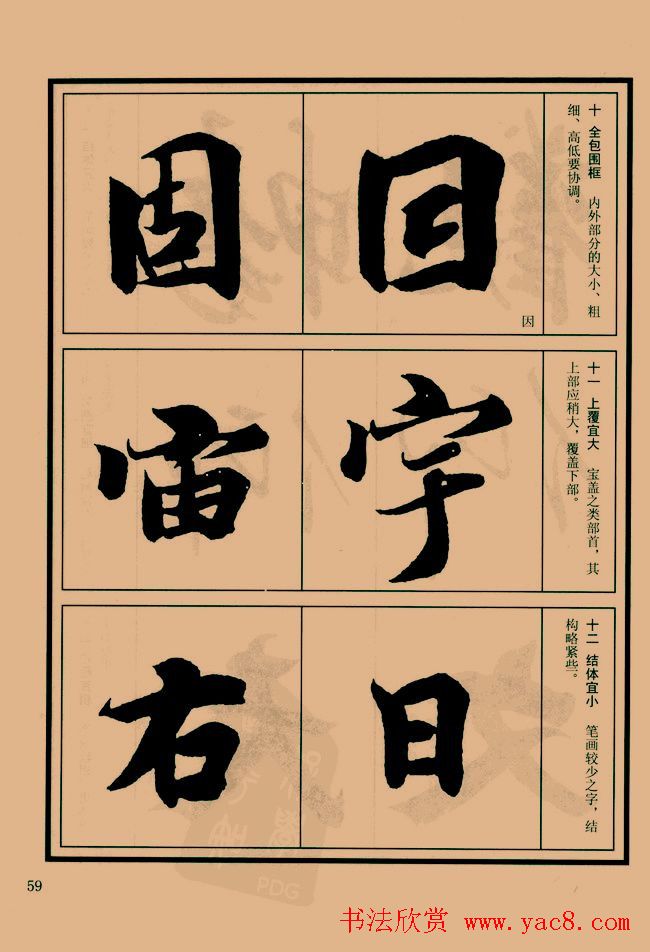 十 全包围框 内外部分的大小、粗
细、高低要协调。
囙
因
固
十一 上覆宜大 宝盖之类部首，其
上部应稍大，覆盖下部。
宇
宙
十二 结体宜小 笔画较少之字，结
构略紧些。
日
右
PDG
59
书法欣赏 www.yac8.com